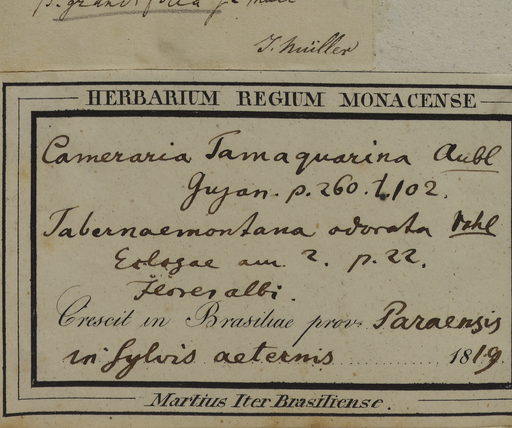 β. grandifolia
J. Müller
HERBARIUM REGIUM MONACENSE
Cameraria Tamaquarina Aubl
Gujan. p. 260. t. 102.
Tabernaemontana odorata Vahl
Eclogae am. 2. p. 22.
Flores albi.
Crescit in Brasiliae prov. Paraensis
in sylvis aeternis 1819.
Martius Iter Brasiliense.